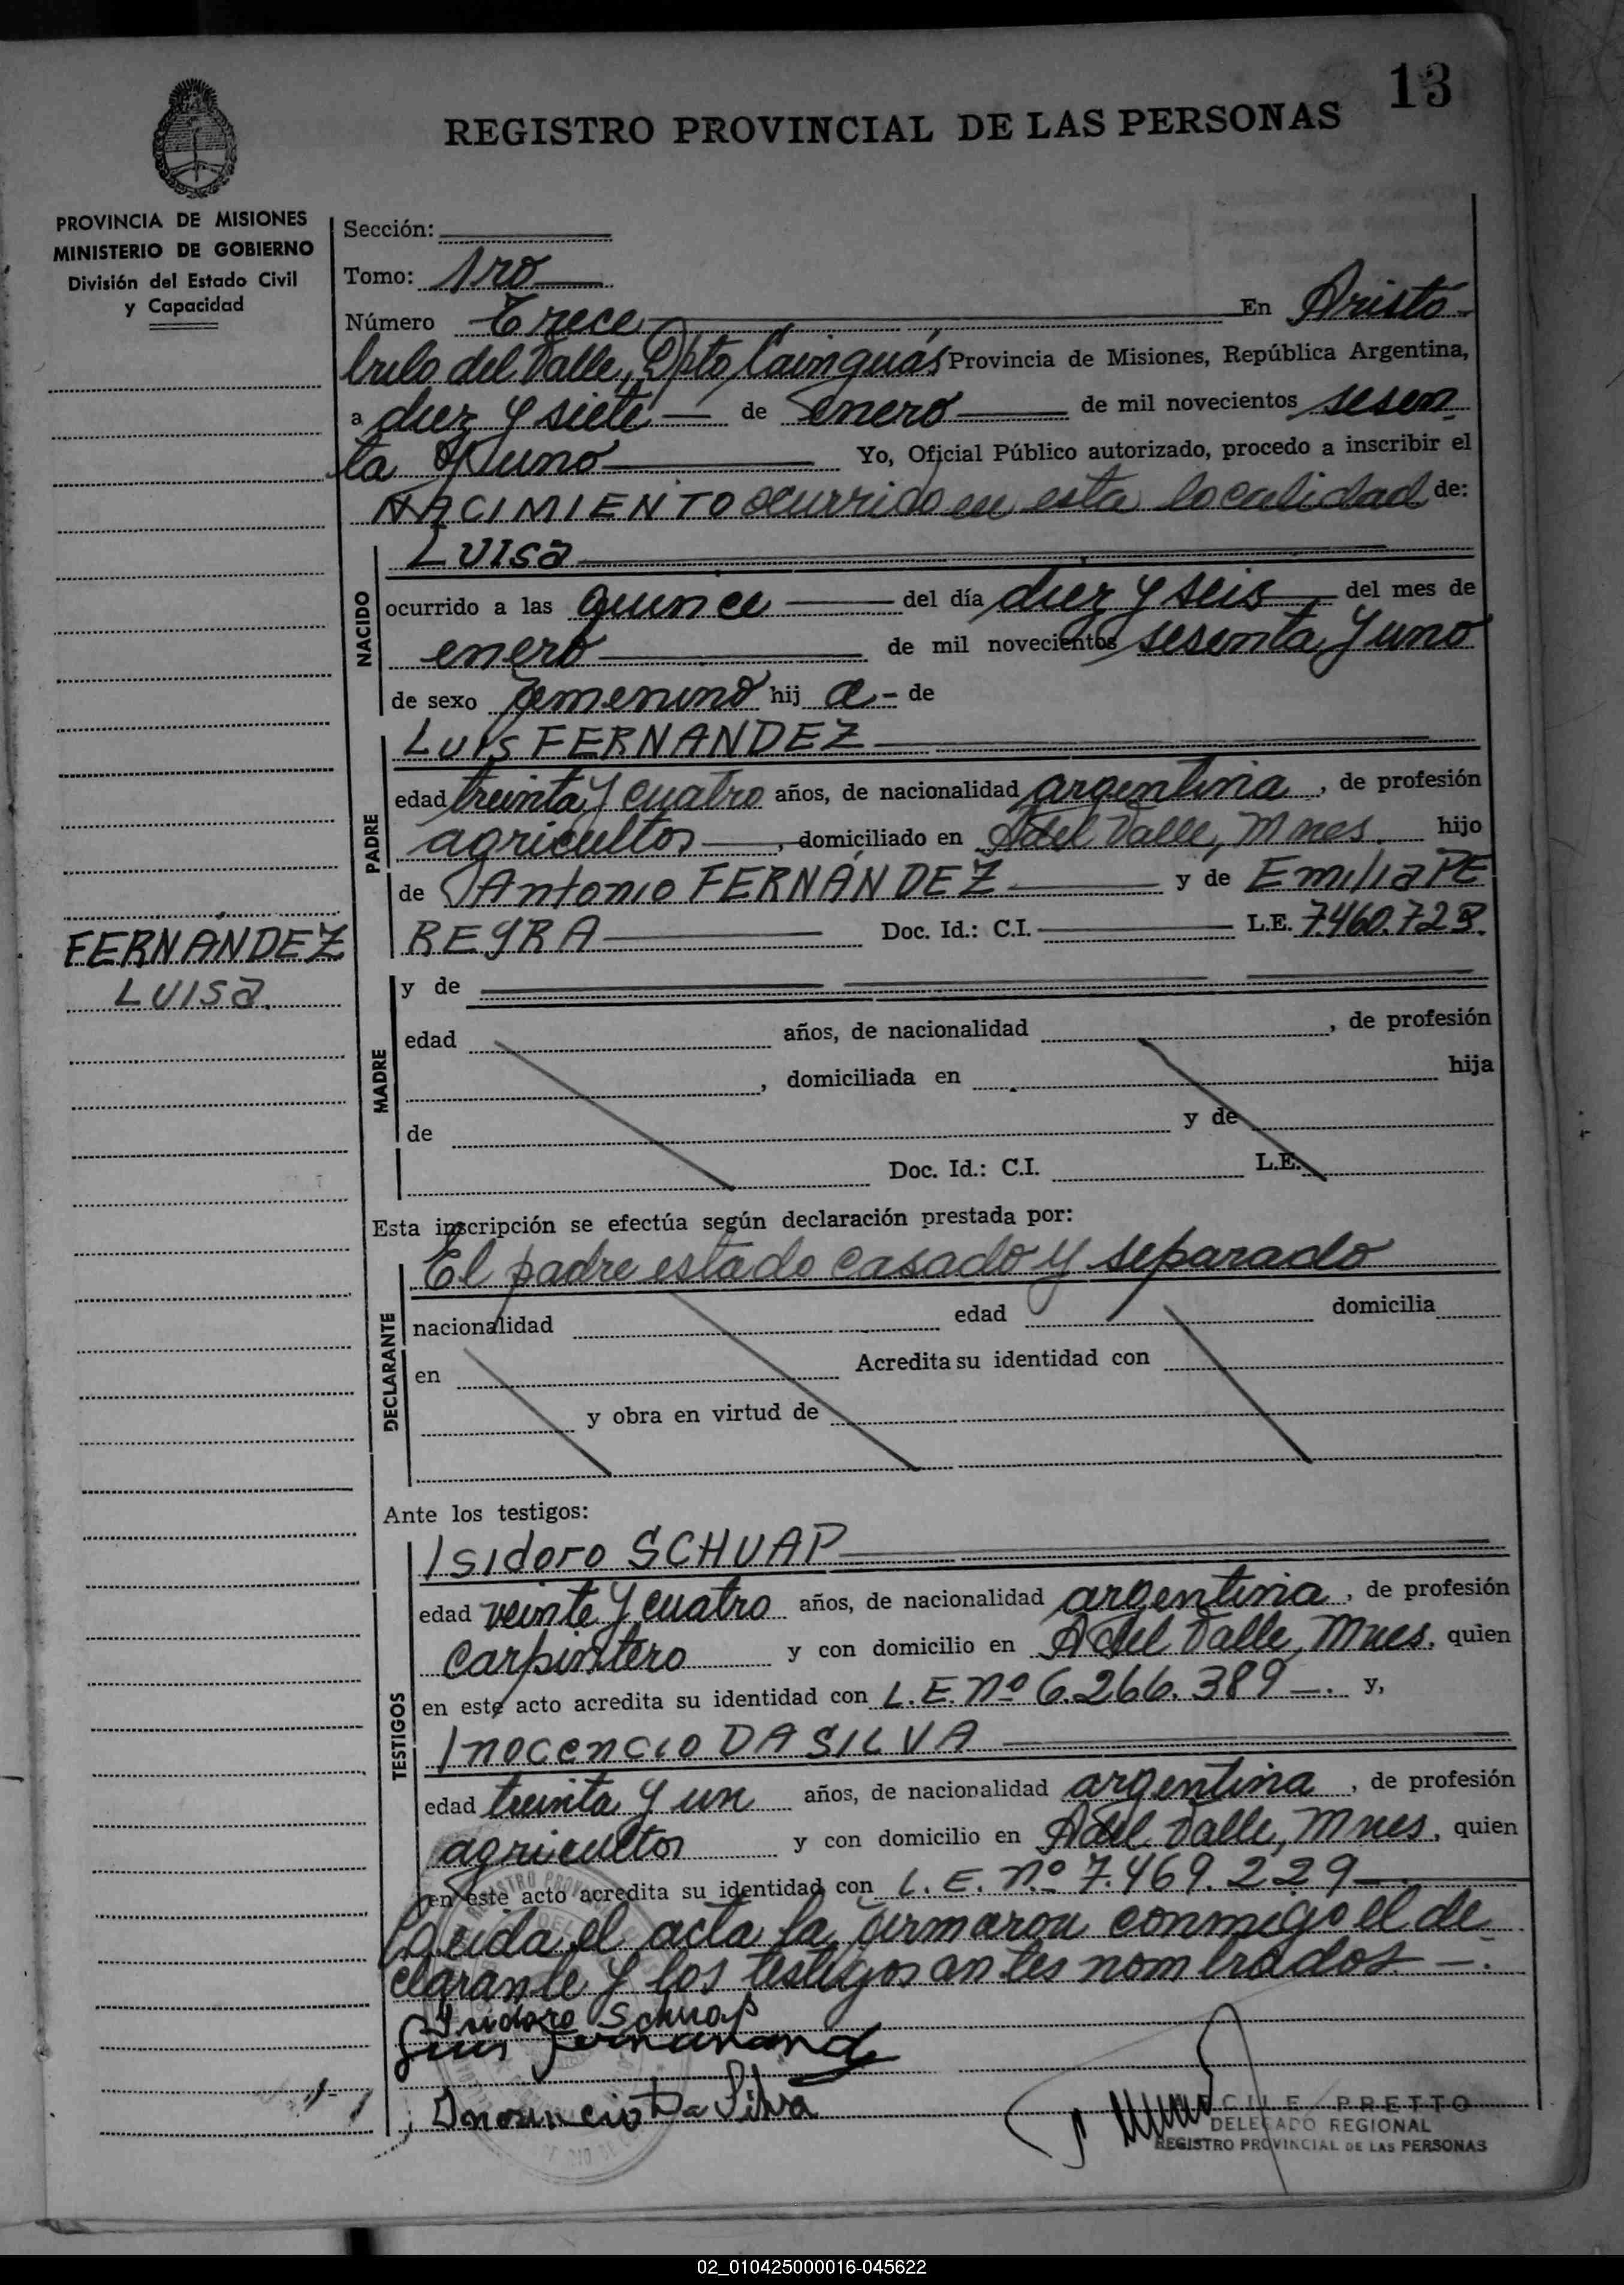 13
REGISTRO PROVINCIAL DE LAS PERSONAS
PROVINCIA DE MISIONES
MINISTERIO DE GOBIERNO
División del Estado Civil
y Capacidad
Sección:
Tomo: 1ro
Número Trece En Aristó
bulo del Valle, Dpto Cainguás Provincia de Misiones, República Argentina,
a diez y siete de enero de mil novecientos sesen
ta y uno Yo, Oficial Público autorizado, procedo a inscribir el
NACIMIENTO ocurrido en esta localidad de:
NACIDO
Luisa
ocurrido a las quince del día diez y seis del mes de
enero de mil novecientos sesenta y uno
de sexo femenino hij a - de
PADRE
Luis FERNANDEZ
edad treinta y cuatro años, de nacionalidad argentina, de profesión
agricultor, domiciliado en A del Valle, Mnes. hijo
de Antonio FERNÁNDEZ y de Emilia PE
REYRA Doc. Id.: C.I. L.E. 7.460.723.
FERNANDEZ
LUISA.
MADRE
y de
edad años, de nacionalidad , de profesión
, domiciliada en hija
de y de
Doc. Id.: C.I. L.E.
Esta inscripción se efectúa según declaración prestada por:
DECLARANTE
El padre estado casado y separado
nacionalidad edad domicilia
en Acredita su identidad con
y obra en virtud de
Ante los testigos:
TESTIGOS
Isidoro SCHUAP
edad veinte y cuatro años, de nacionalidad argentina, de profesión
carpintero y con domicilio en A del Valle, Mnes, quien
en este acto acredita su identidad con L.E. nº 6.266.389 -. y,
Inocencio DA SILVA
edad treinta y un años, de nacionalidad argentina, de profesión
agricultor y con domicilio en A del Valle, Mnes, quien
en este acto acredita su identidad con L.E. nº 7.469.229 -.
Leida el acta la firmaron conmigo el de
clarante y los testigos antes nombrados -.
Isidoro Schuap
Luis Fernandez
Inocencio Da Silva
PRETTO
DELEGADO REGIONAL
REGISTRO PROVINCIAL DE LAS PERSONAS
02_010425000016-045622